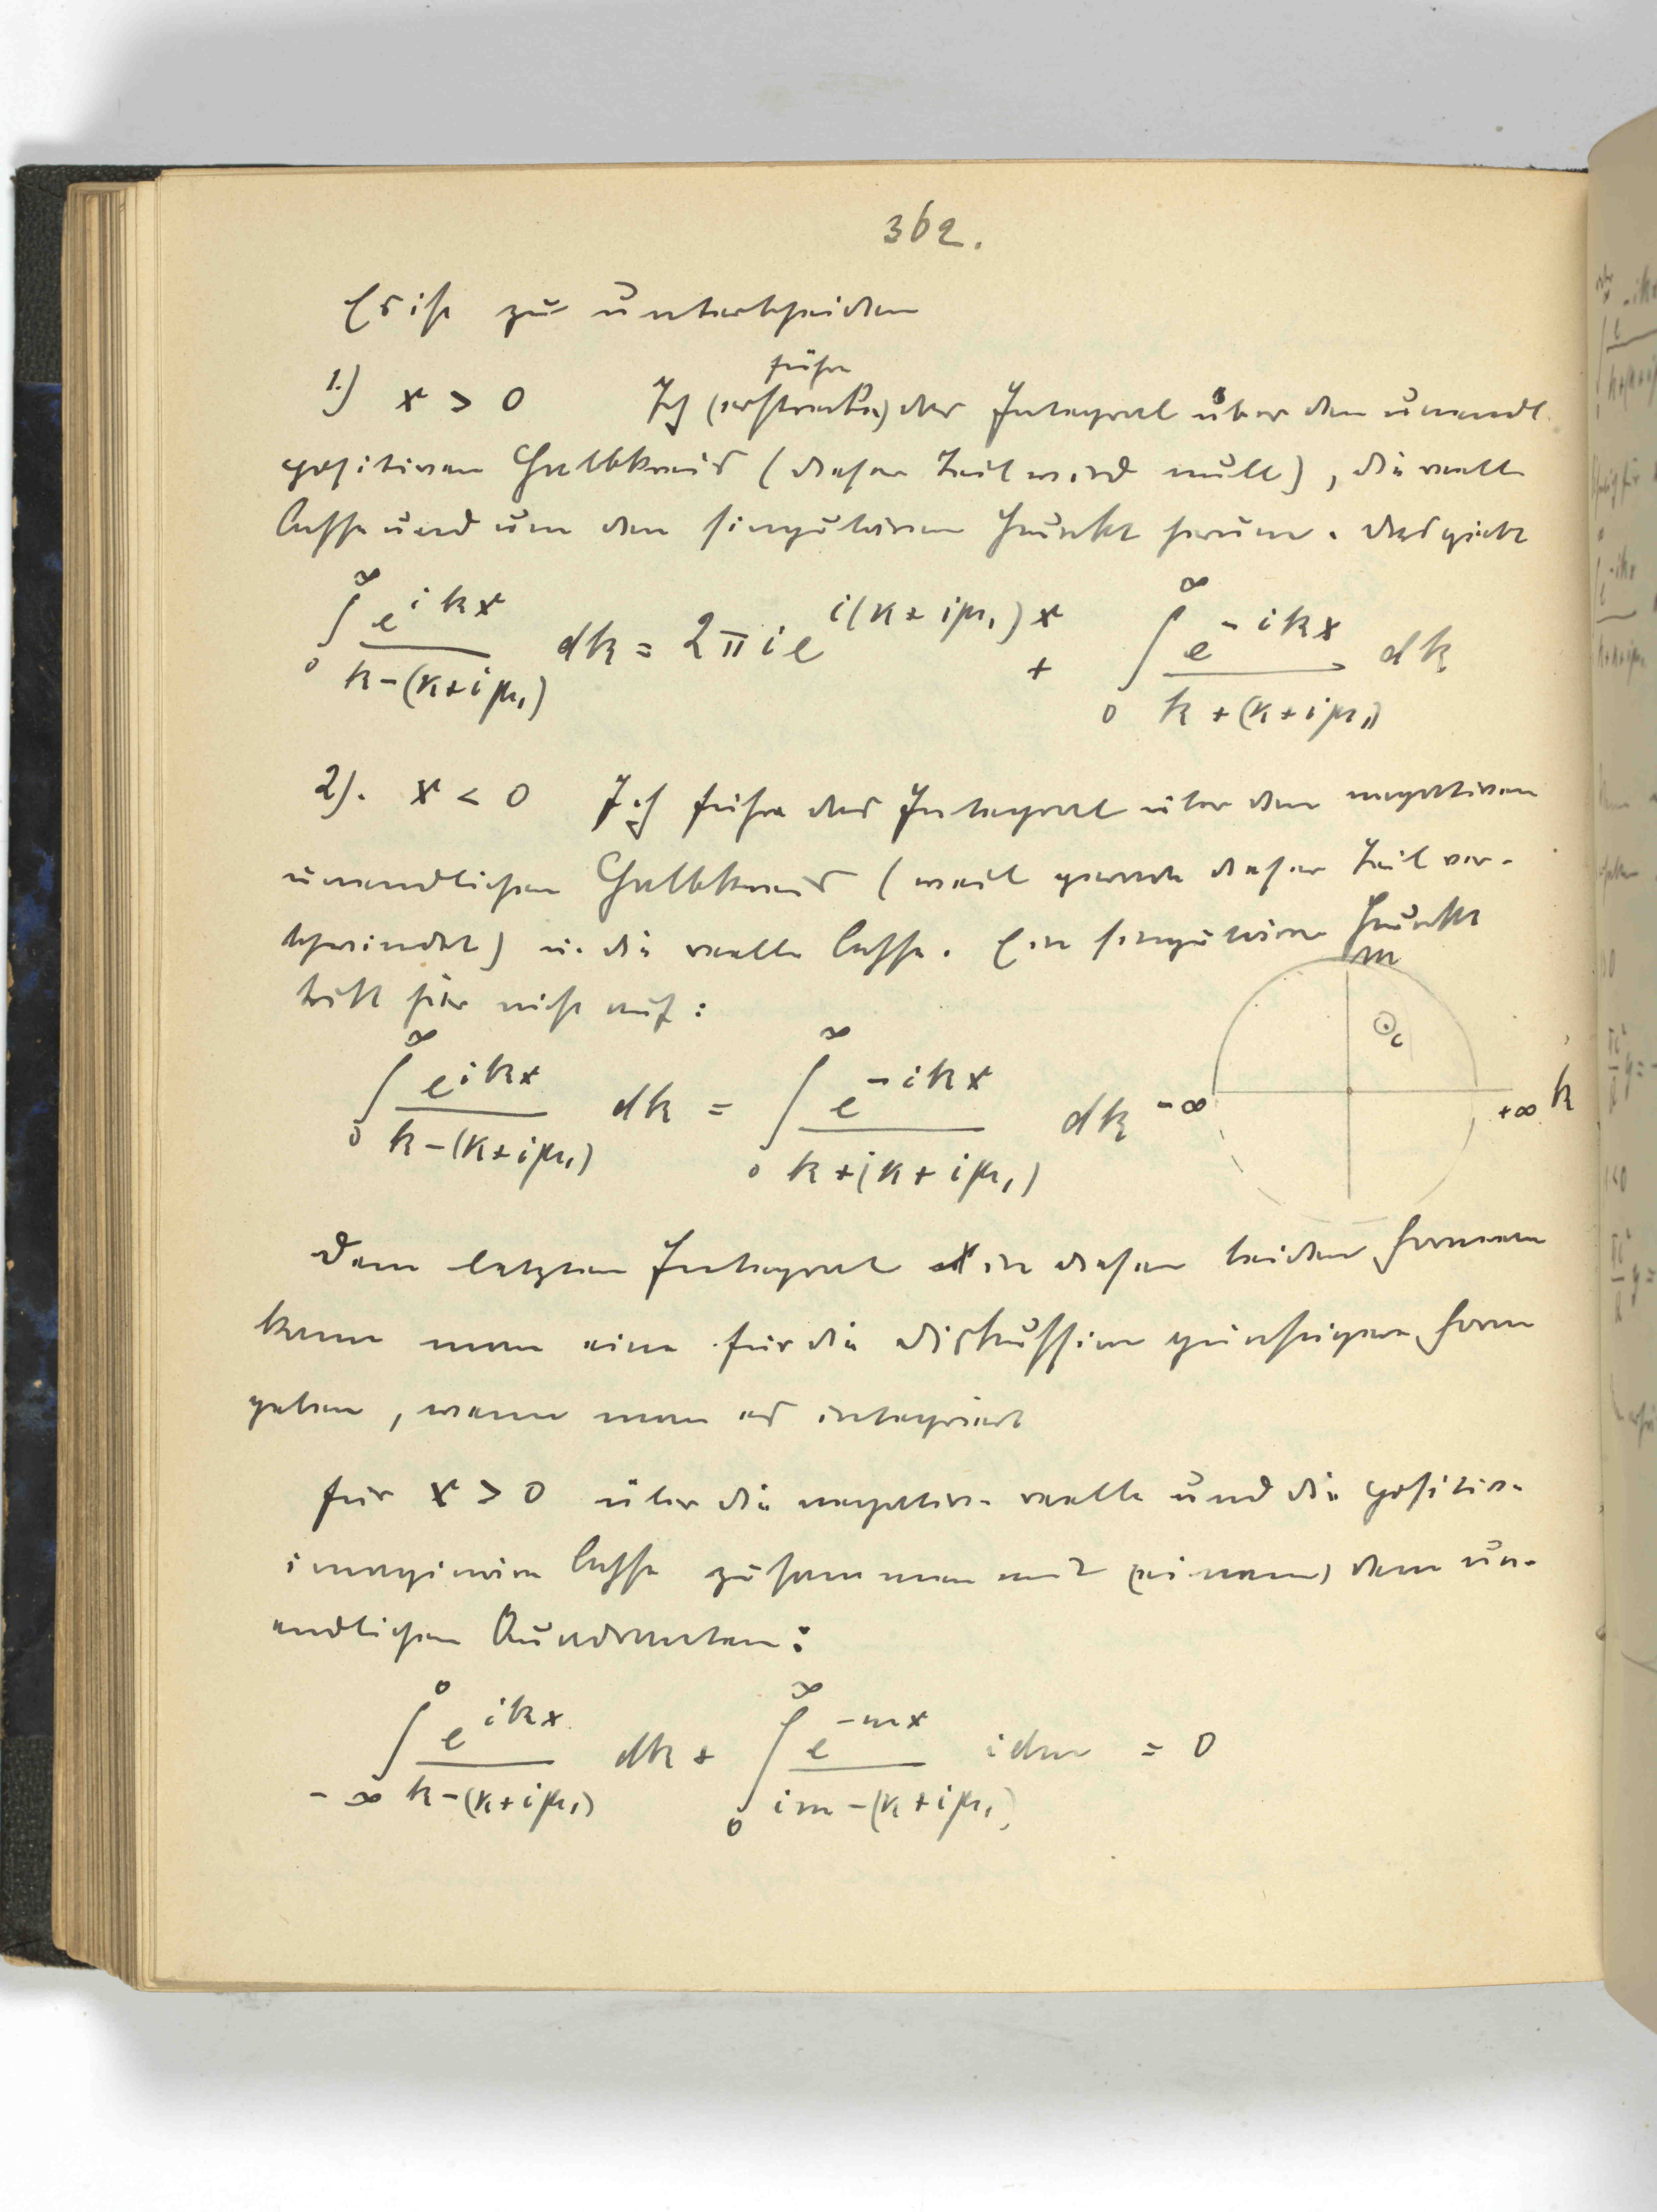 362.
Es ist zu unterscheiden
führe
1.) x > 0 Ich (erstrecke) das Integral über den unendl.
positiven Halbkreis (dieser Teil wird null), die reelle
Achse und um den singulären Punkt herum. Das giebt
∫₀^∞ e^{ikx} / (k-(κ+iμ₁)) dk = 2πi e^{i(κ+iμ₁)x} + ∫₀^∞ e^{-ikx} / (k+(κ+iμ₁)) dk
2). x < 0 Ich führe das Integral über den negativen
unendlichen Halbkreis (weil gerade dieser Teil ver-
schwindet) u. die reelle Achse. Ein singulärer Punkt
tritt hier nicht auf:
m
c
∫₀^∞ e^{ikx} / (k-(κ+iμ₁)) dk = ∫₀^∞ e^{-ikx} / (k+(κ+iμ₁)) dk
-∞ +∞ k
Dem letzten Integral in diesen beiden Formeln
kann man eine für die Diskussion günstigere Form
geben, wenn man es integriert
für x > 0 über die negative reelle und die positive
imaginäre Achse zusammen mit (einem) dem un-
endlichen Quadranten:
∫_{-∞}^0 e^{ikx} / (k-(κ+iμ₁)) dk + ∫₀^∞ e^{-mx} / (im-(κ+iμ₁)) idm = 0